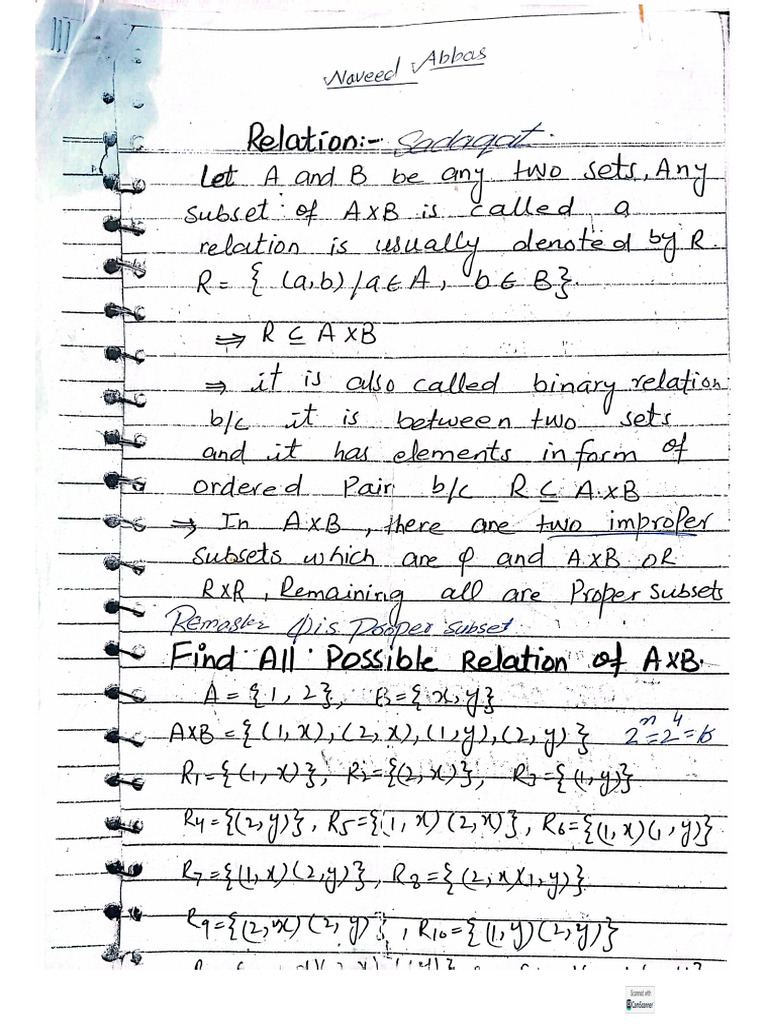 Naveed Abbas
Relation:- Sadaqat.
Let A and B be any two sets, Any
subset of A×B is called a
relation is usually denoted by R.
R = { (a,b) / a ∈ A, b ∈ B}.
⇒ R ⊆ A×B
⇒ it is also called binary relation
b/c it is between two sets
and it has elements in form of
ordered Pair b/c R ⊆ A×B
⇒ In A×B, there are two improper
subsets which are φ and A×B OR
R×R, Remaining all are Proper subsets
φ is Pooper subset
Find All Possible Relation of A×B.
A = {1, 2}, B = {x, y}
A×B = {(1, x), (2, x), (1, y), (2, y)} 2ⁿ = 2⁴ = 16
R1 = {(1, x)}, R2 = {(2, x)}, R3 = {(1, y)}
R4 = {(2, y)}, R5 = {(1, x) (2, x)}, R6 = {(1, x) (1, y)}
R7 = {(1, x) (2, y)}, R8 = {(2, x)(1, y)}
R9 = {(2, x) (2, y)}, R10 = {(1, y) (2, y)}
Scanned with
CamScanner